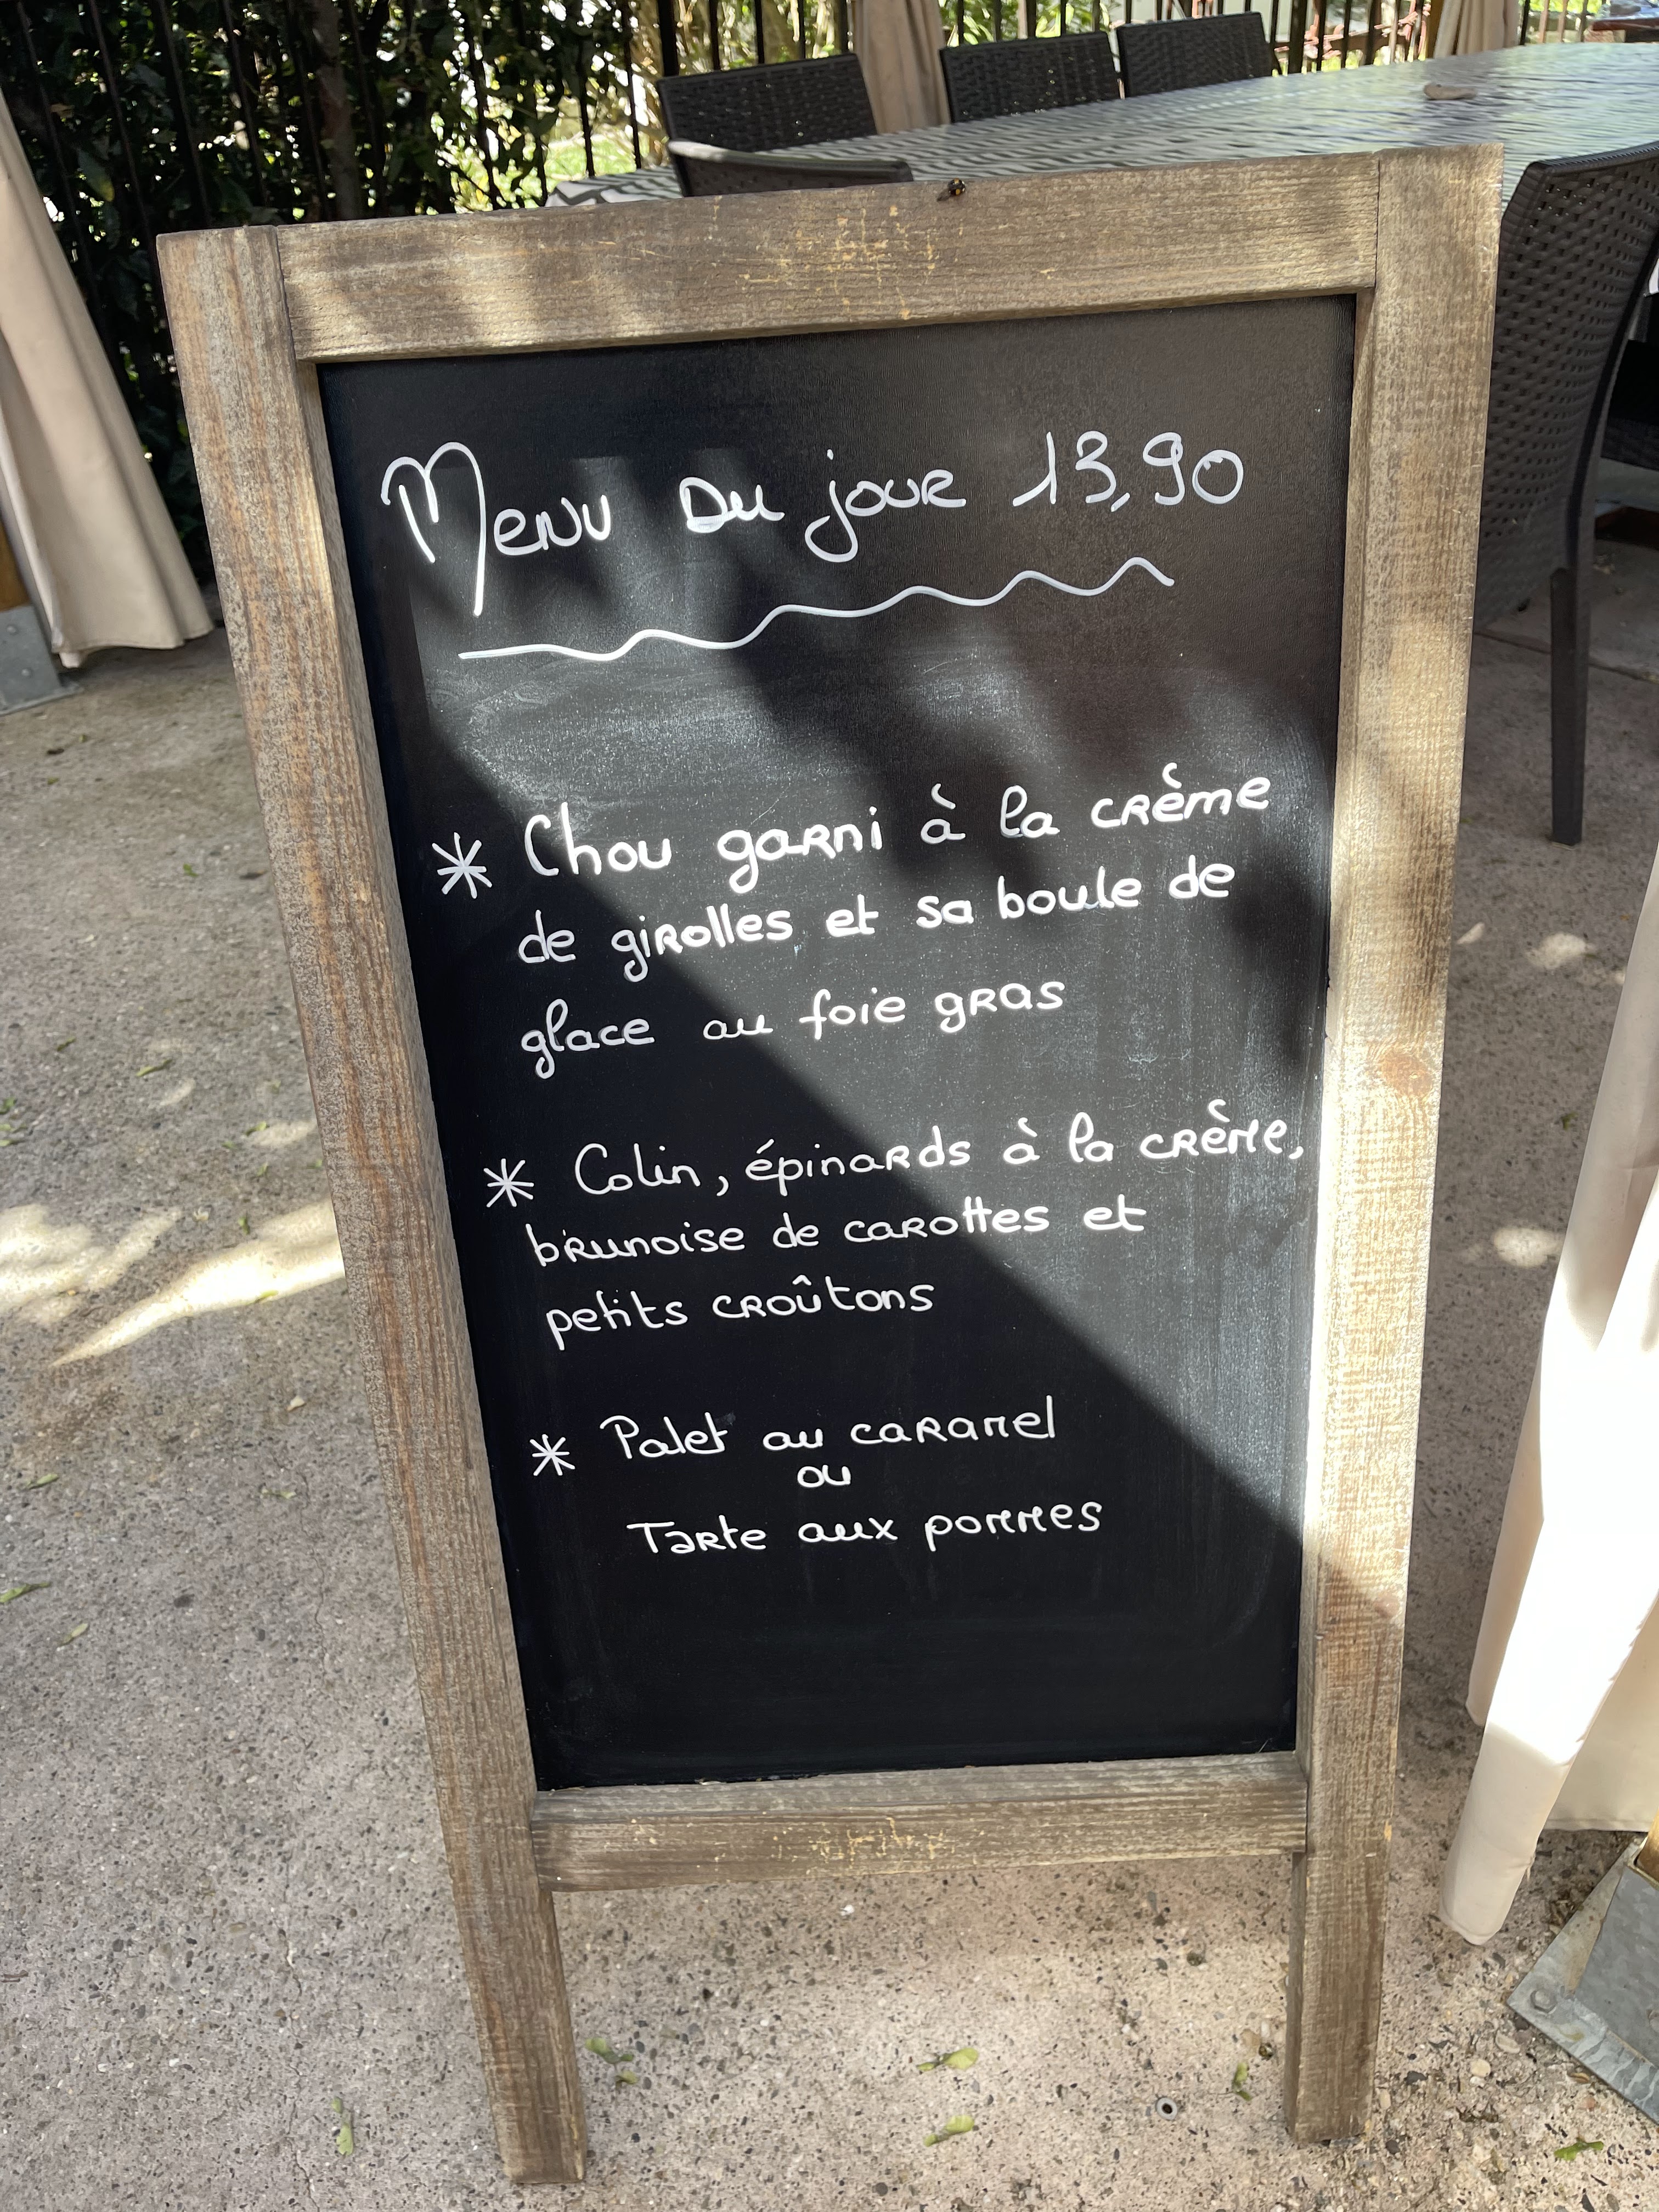 Menu Du jour 13,90
* Chou garni à la crème
de girolles et sa boule de
glace au foie gras
* Colin, épinards à la crème,
brunoise de carottes et
petits croûtons
* Palet au caramel
ou
Tarte aux pommes